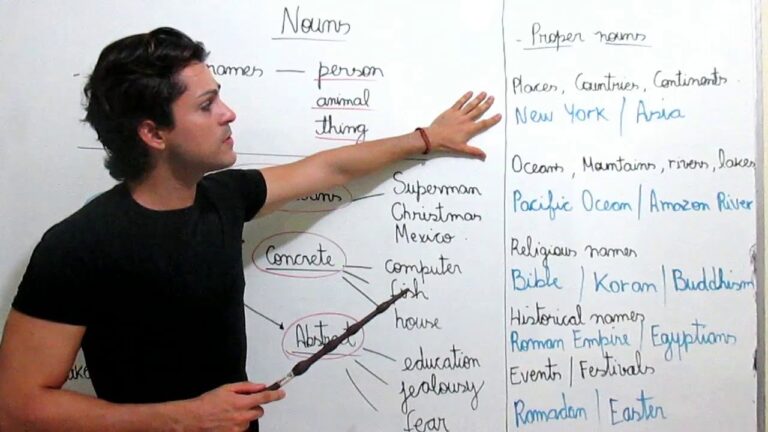 Nouns
names — person
animal
thing
Superman
Christmas
Mexico.
Concrete
computer
fish
house
Abstract
education
jealousy
fear
- Proper nouns
Places, Countries, Continents.
New York / Asia
Oceans, Mountains, rivers, lakes
Pacific Ocean / Amazon River
Religious names
Bible / Koran / Buddhism
Historical names
Roman Empire / Egyptians
Events / Festivals
Romadan / Easter